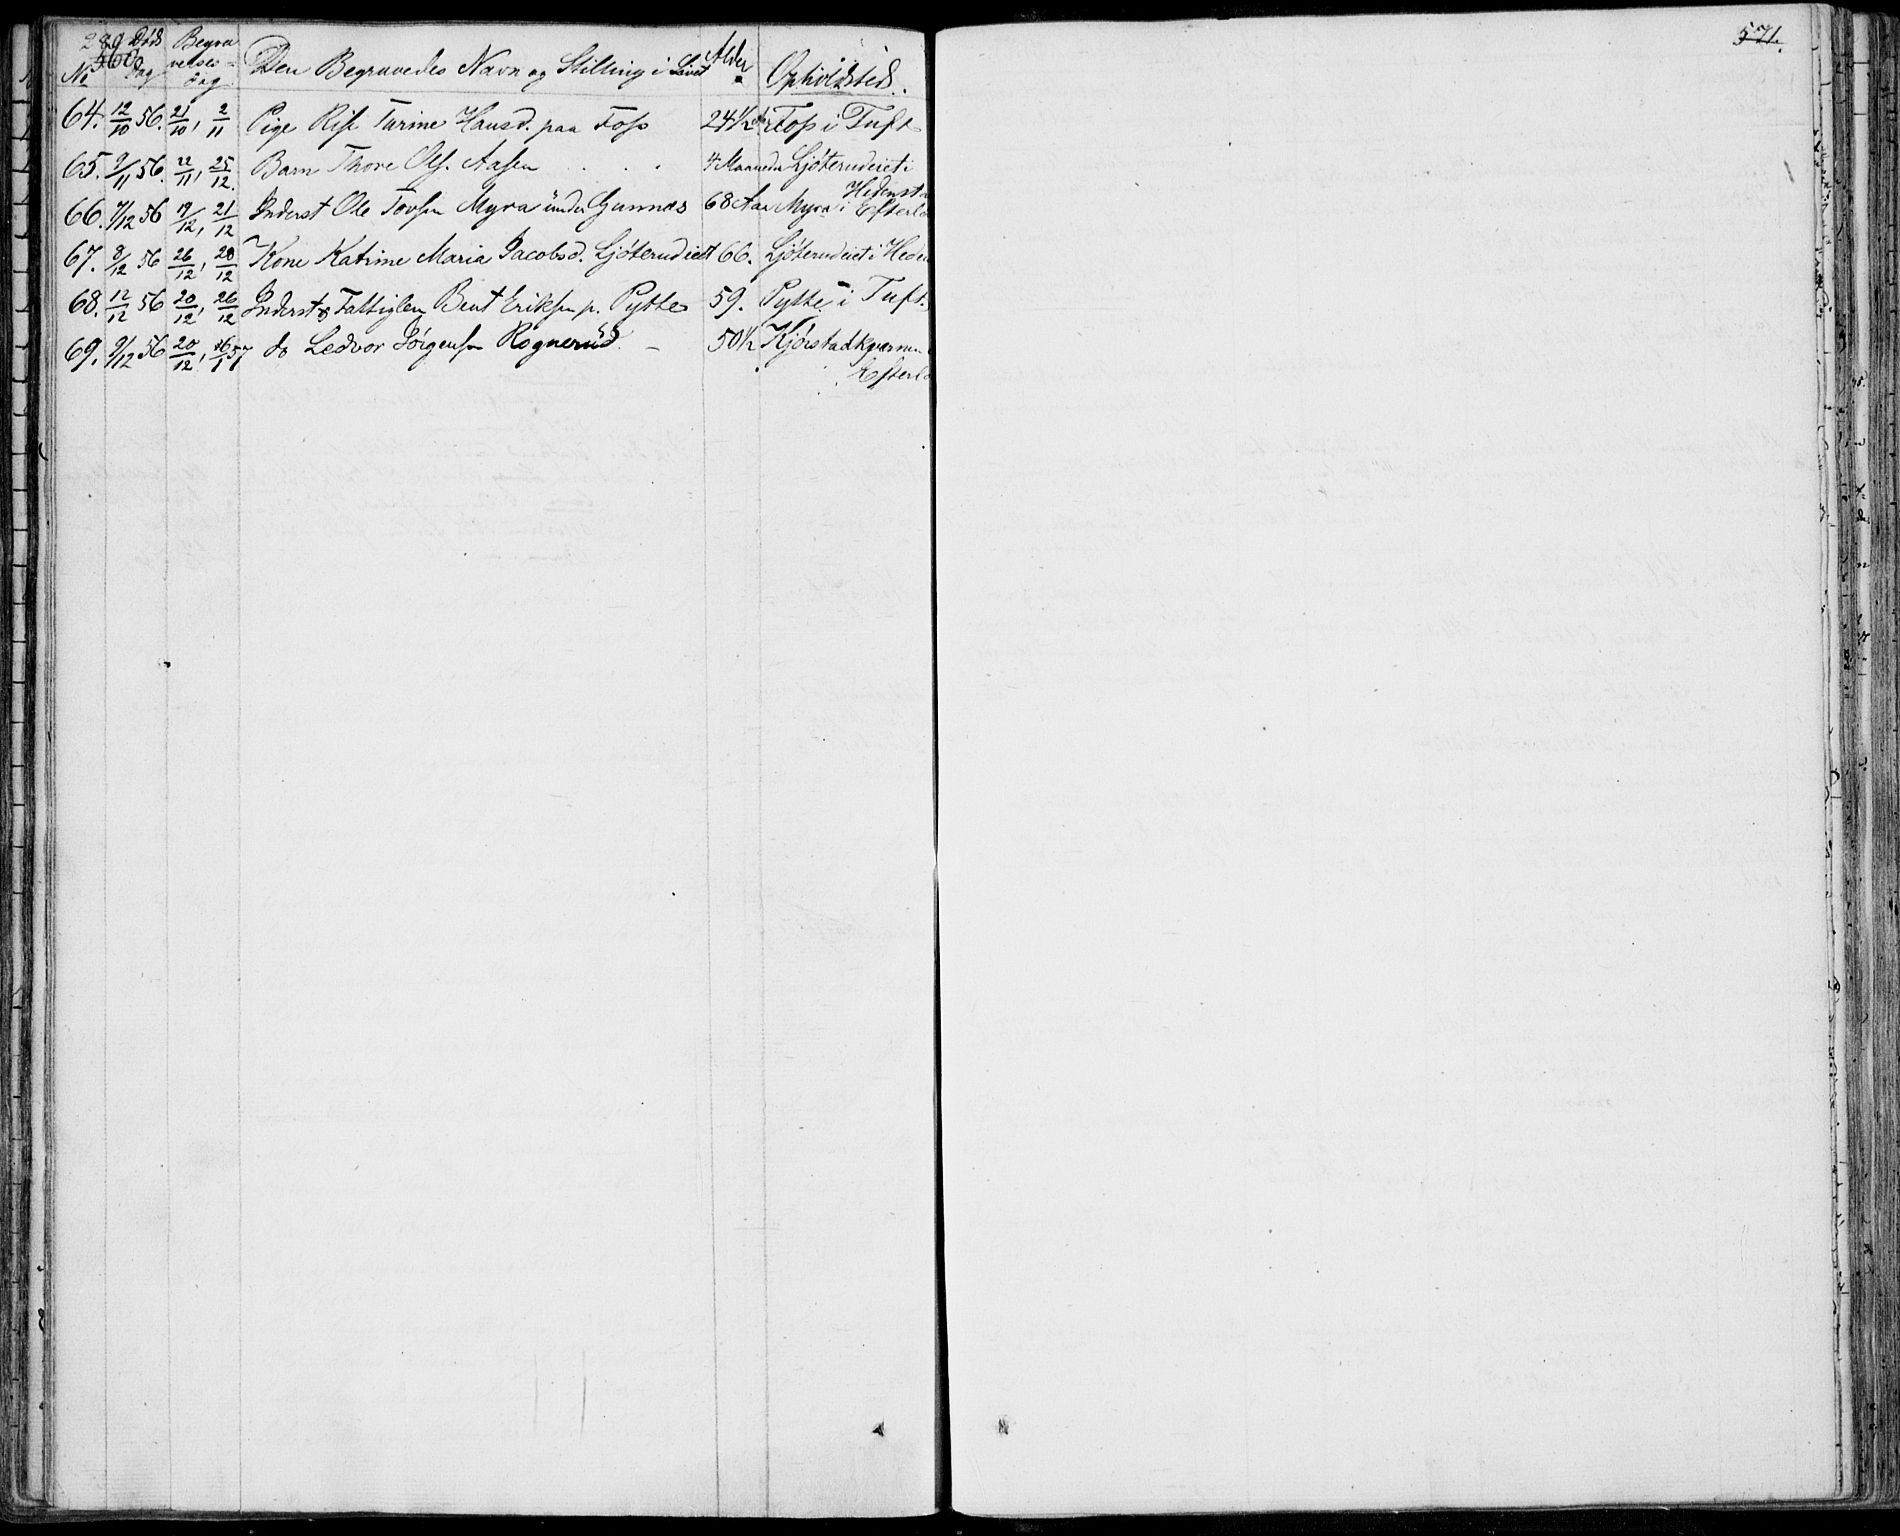 289 571.
560
No Døds Dag Begravelses-dag Den Begravedes Navn og Stilling i Livet Alder Opholdsted.
64. 12/10 56. 21/10, 2/11 Pige Turine Hansd. paa Foss 24 1/2 Foss i Tuft
65. 9/11 56. 22/11, 25/12. Barn Thore Ols. Aasen 4 Maaneder Ljøterudeiet i
Hedensta
66. 7/12 56 19/12, 21/12 Inderst Ole Tovsen Myra under Gunnes 68 Aar Myra i Efterlø
67. 8/12 56 26/12, 28/12 Kone Katrine Maria Jacobsd. Ljøterudiet 66. Ljøterudeiet i Heden
68. 12/12 56 20/12, 26/12 Inderst & Fattiglem Bent Eriksen p. Pytte 59. Pytte i Tuft.
69. 9/12 56 20/12, 16/1 57 do Ledvor Jørgensen Rognerud 50 1/2 Kjørstadkvernen
Efterlø